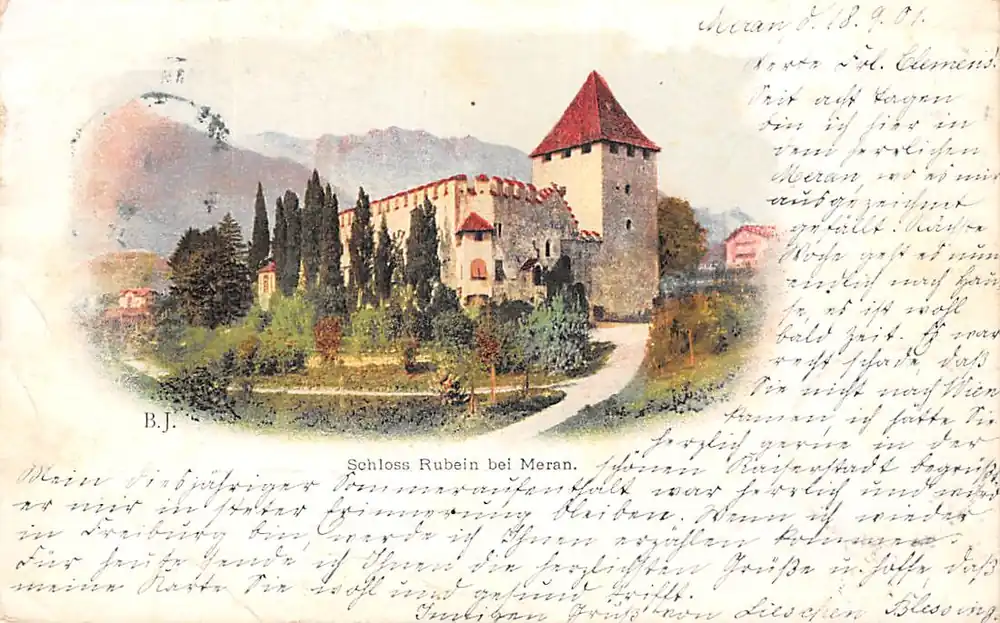 Meran d. 18.9.01.
Werte Frl. Clemens!
Seit acht Tagen
bin ich hier in
dem herrlichen
Meran, wo es mir
ausgezeichnet
gefällt! Nächste
Woche geht es nun
endlich nach Hau
se, es ist wohl
bald Zeit. Es war
recht schade, daß
Sie nicht nach Wien
kamen, ich hätte Sie
herzlich gerne in der
schönen Kaiserstadt begrüßt
B.J.
Schloss Rubein bei Meran.
Mein diesjähriger Sommeraufenthalt war herrlich und wird
er mir in steter Erinnerung bleiben. Wenn ich wieder
in Freiburg bin, werde ich Ihnen erzählen kommen.
Für heute sende ich Ihnen die herzlichsten Grüße u. hoffe, daß
meine Karte Sie wohl und gesund trifft.
Innigen Gruß von Lieschen Blessing.